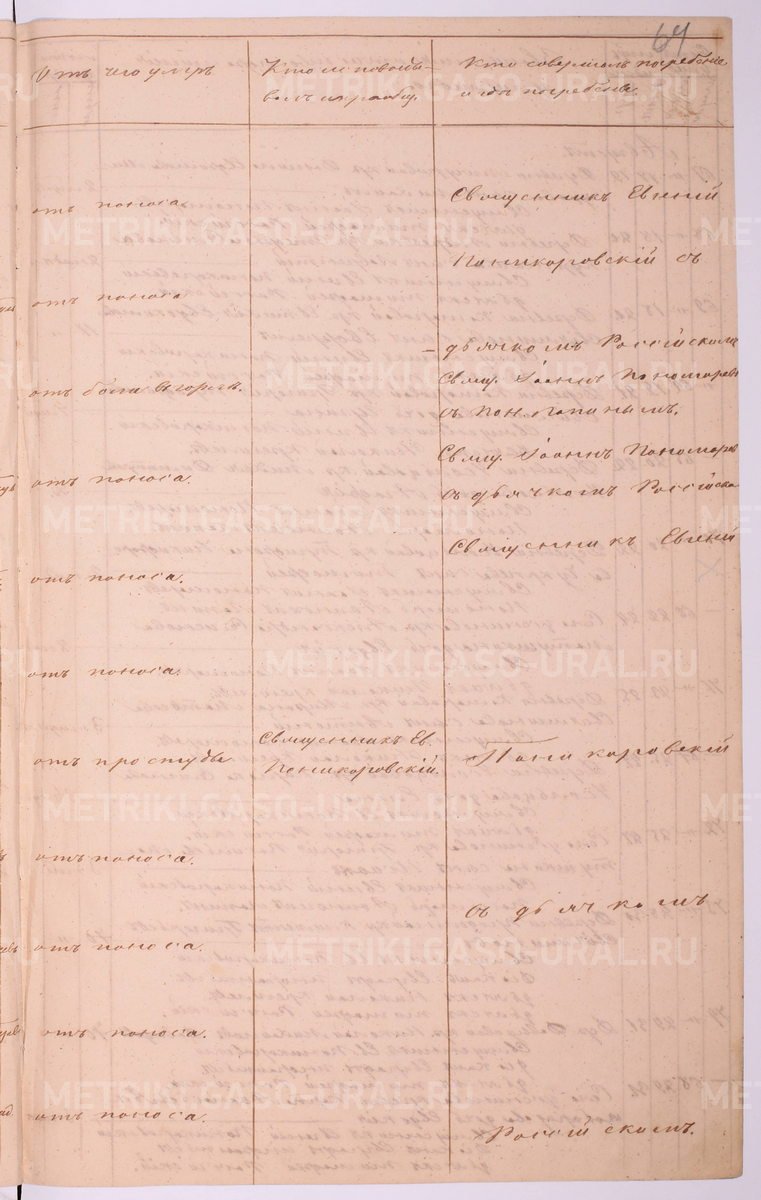 64
Отъ чего умеръ
Кто исповѣды-
валъ и пріобщ.
Кто совершалъ погребеніе
и гдѣ погребены.
отъ поноса.
Священникъ Евгеній
Поникоровскій съ
отъ поноса.
дьячкомъ Россійскимъ
отъ боли въ горлѣ.
Свящ. Іоаннъ Пономаревъ
съ пон. Попинымъ.
отъ поноса.
Свящ. Іоаннъ Пономарев
съ дьячкомъ Россійск
Священникъ Евгеній
отъ поноса.
отъ поноса.
отъ простуды
Священникъ Ев.
Поникоровскій.
Поникоровскій
отъ поноса.
съ дьячкомъ
отъ поноса.
отъ поноса.
отъ поноса.
Россійскимъ.
METRIKI.GASO-URAL.RU